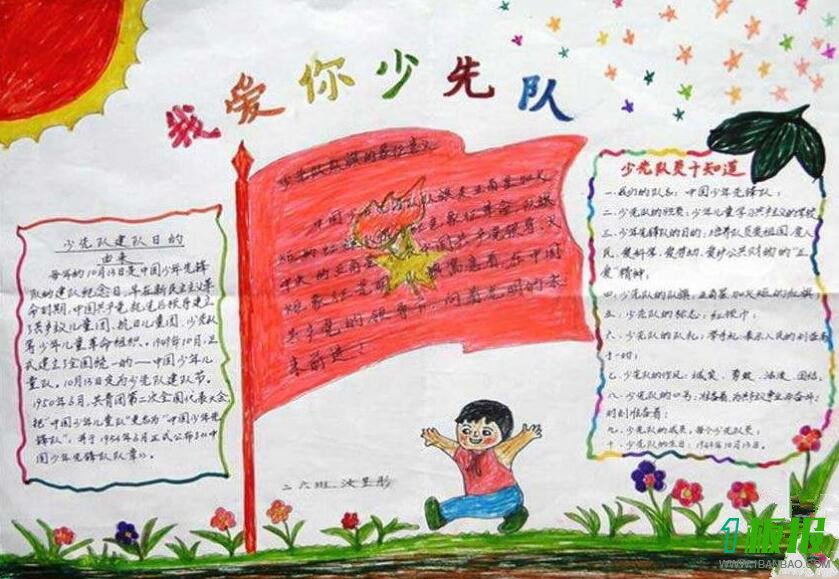 我爱你少先队
少先队建队日的
由来
每年的10月13日是中国少年先锋
队的建队纪念日。早在新民主主义革
命时期,中国共产党就先后领导建立
了共产主义儿童团、抗日儿童团、少先队
等少年儿童革命组织。1949年10月,正
式建立了全国统一的——中国少年儿
童队。10月13日定为少先队建队节。
1950年6月,共青团第二次全国代表大会
把“中国少年儿童队”更名为“中国少年先
锋队”,并于1954年6月正式公布了《中
国少年先锋队队章》。
少先队队旗的象征意义
中国
中国共产党领导,火
炬象征光明
在中国
共产党的领导下,向着光明的未
来前进!
二六班
少先队员十知道
一、我们的队名:中国少年先锋队;
二、少先队的性质:少年儿童学习共产主义的学校
三、少先队的目的:培养队员爱祖国、爱人
民、爱科学、爱劳动、爱护公共财物的“五
爱”精神;
四、少先队的队旗:五角星加火炬的红旗
五、少先队的标志:红领巾;
六、少先队的队礼:举手礼,表示人民的利益高
于一切;
七、少先队的作风:诚实、勇敢、活泼、团结。
八、少先队的口号:准备着,为共产主义事业而奋斗!
时刻准备着;
九、少先队的成员:每个少先队员;
十、少先队的生日:1949年10月13日。
1板报
WWW.1BANBAO.COM